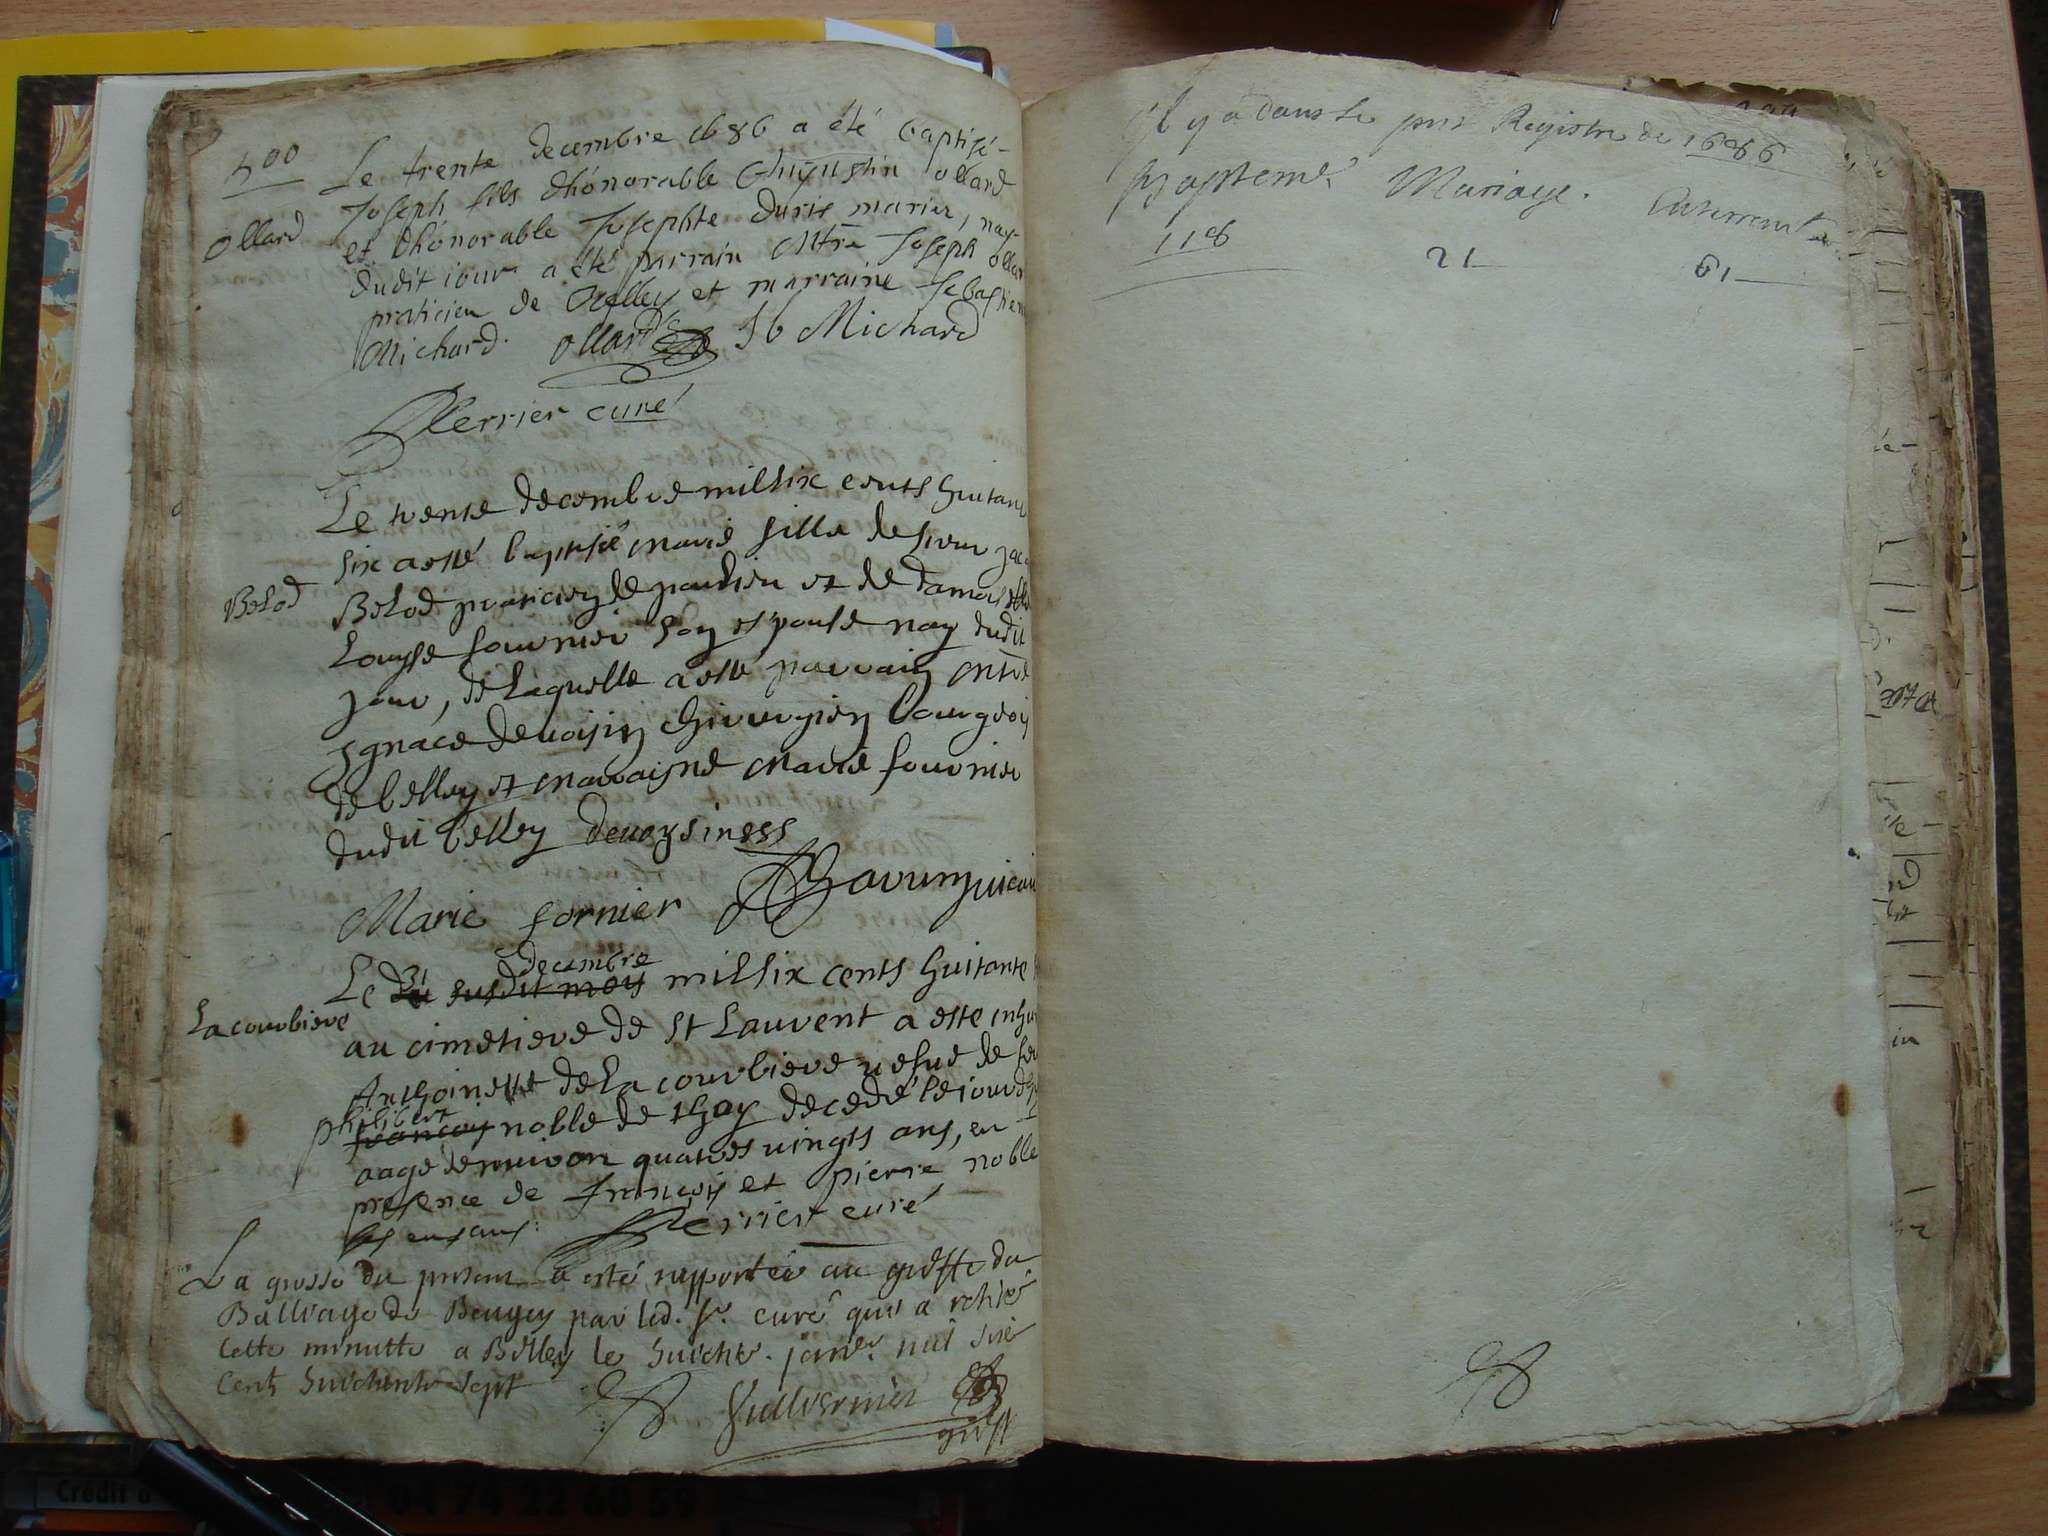 400
Le trente decembre 1686 a été baptisé
Ollard
Joseph fils dhónorable Augustin ollard
et dhónorable Josephte Duris mariez, nay
dudit iour a été parrain Mtre Joseph ollar
praticien de Belley et marraine Sebastien
Michard. Ollard Sb Michard
Perrier curé
Le trente decembre mil six cents huitante
six a esté baptisée marie fille de sieur Jac
Belod
Belod praticien de et de damoiselle
Louyse fournier son espouse nay dudit
jour, de laquelle a esté parrain Mtre
Ignace devoisin chirurgien bourgeois
de belley et marraisne marie fournier
dudit belley devoysiness
Marie fornier vicair
decembre
Le 31 susdit moys mil six cents huitante
La courbiere
au cimetiere de St Laurent a esté inhu
Anthoinette de La courbiere vefue de feu
philibert
francois noble de thoy decedé le jour dhy
aage denviron quatres vingts ans, en
presence de françois et pierre noble
ses enfans: Perrier curé
La grosse du present a esté rapportée au greffe du
Balliage de Beugey par led. Sr. curé qui a retiré
cette minutte a Belley le huicte. janer. mil six
cent huictante sept
Guilliermier
greff
Il y a dans le pnt Registre de 1686
Baptemes Mariage. Enterrement
118 21 61